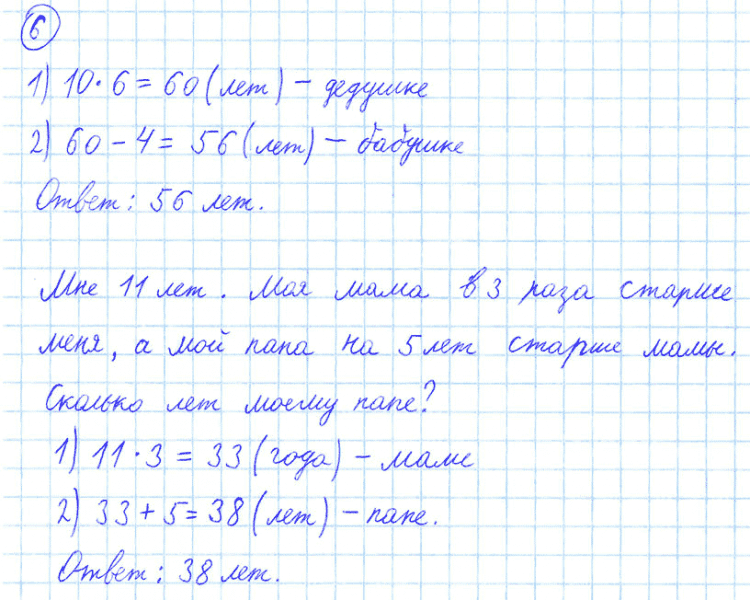 6
1) 10 · 6 = 60 (лет) – дедушке
2) 60 – 4 = 56 (лет) – бабушке
Ответ: 56 лет.
Мне 11 лет. Моя мама в 3 раза старше
меня, а мой папа на 5 лет старше мамы.
Сколько лет моему папе?
1) 11 · 3 = 33 (года) – маме
2) 33 + 5 = 38 (лет) – папе.
Ответ: 38 лет.